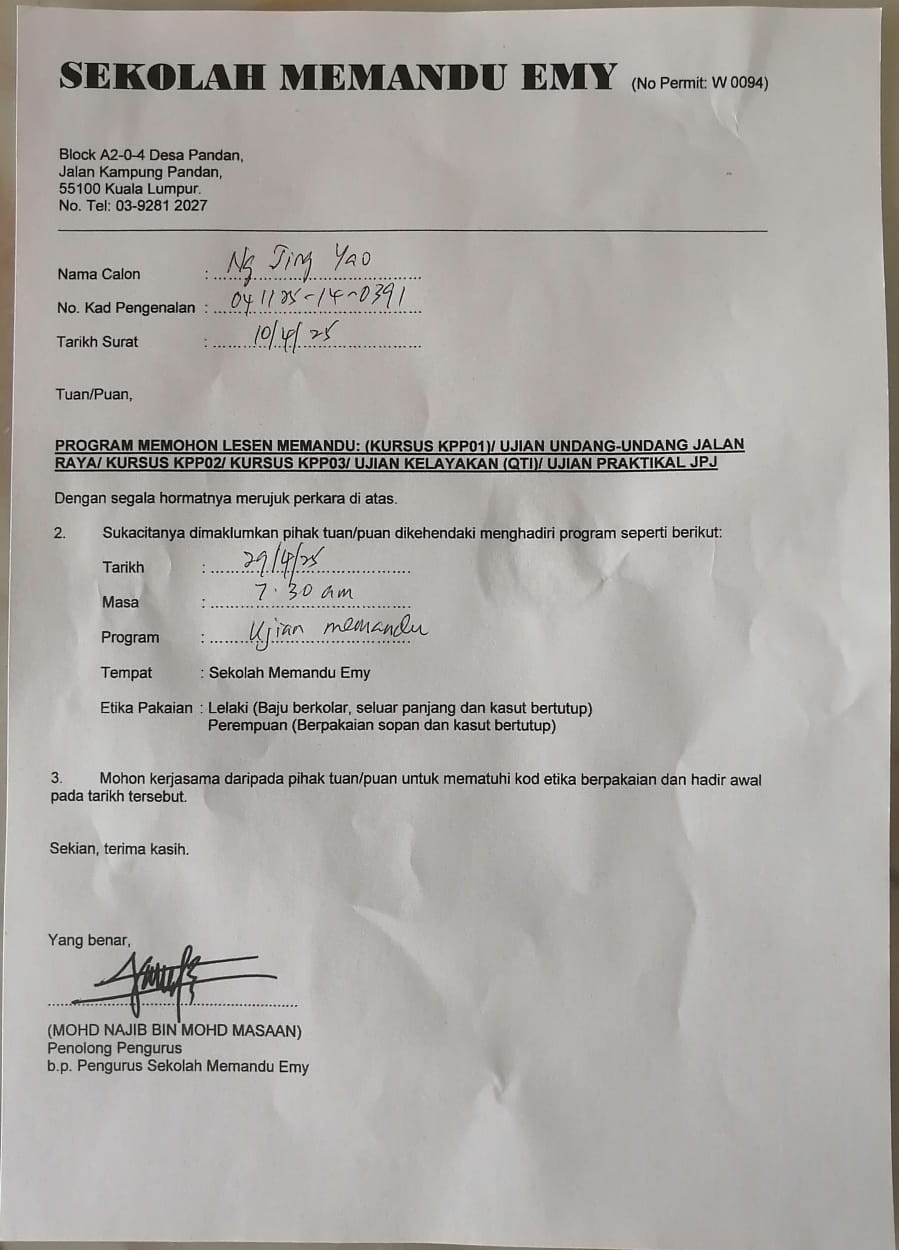 SEKOLAH MEMANDU EMY (No Permit: W 0094)
Block A2-0-4 Desa Pandan,
Jalan Kampung Pandan,
55100 Kuala Lumpur.
No. Tel: 03-9281 2027
Nama Calon : Ng Jing Yao
No. Kad Pengenalan : 041125-14-0391
Tarikh Surat : 10/4/25
Tuan/Puan,
PROGRAM MEMOHON LESEN MEMANDU: (KURSUS KPP01)/ UJIAN UNDANG-UNDANG JALAN
RAYA/ KURSUS KPP02/ KURSUS KPP03/ UJIAN KELAYAKAN (QTI)/ UJIAN PRAKTIKAL JPJ
Dengan segala hormatnya merujuk perkara di atas.
2. Sukacitanya dimaklumkan pihak tuan/puan dikehendaki menghadiri program seperti berikut:
Tarikh : 29/4/25
Masa : 7.30 am
Program : Ujian memandu
Tempat : Sekolah Memandu Emy
Etika Pakaian : Lelaki (Baju berkolar, seluar panjang dan kasut bertutup)
Perempuan (Berpakaian sopan dan kasut bertutup)
3. Mohon kerjasama daripada pihak tuan/puan untuk mematuhi kod etika berpakaian dan hadir awal
pada tarikh tersebut.
Sekian, terima kasih.
Yang benar,
(MOHD NAJIB BIN MOHD MASAAN)
Penolong Pengurus
b.p. Pengurus Sekolah Memandu Emy